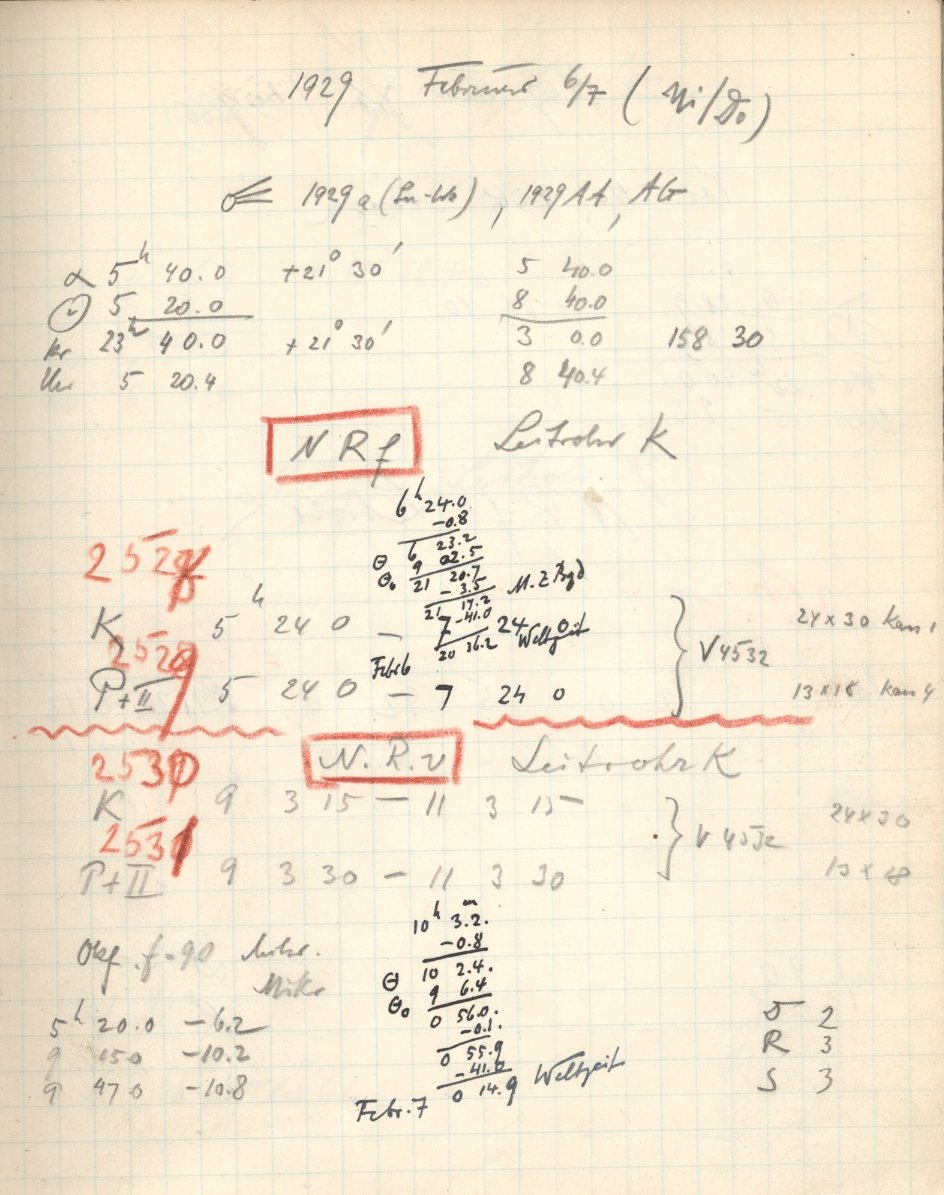 1929 Februar 6/7 (Mi/Do)
1929 a (                ), 1929 AA, AG
α 5ʰ 40.0 +21° 30′ 5 40.0
5 20.0 8 40.0
23ʰ 40.0 +21° 30′ 3 0.0 158 30
Uhr 5 20.4 8 40.4
N R f Leitrohr K
6ʰ 24.0
-0.8
6 23.2
Θ 9 02.5
Θ₀ 21 20.7
- 3.5
21 17.2 M.Z.
-41.0
Febr 6 20 36.2 Weltzeit
2528
K 5ʰ 24 0 – 7 24 0
2529
P+II 5 24 0 – 7 24 0
} V 4532
24×30
13×18
N.R.v Leitrohr K
2530
K 9 3 15 – 11 3 15
2531
P+II 9 3 30 – 11 3 30
} V 4532
24×30
13×18
10ʰ 3.2ᵐ
-0.8
Θ 10 2.4
Θ₀ 9 6.4
0 56.0
-0.1
0 55.9
-41.0
Febr. 7 0 14.9 Weltzeit
Okf. f=90
Mikr
5ʰ 20.0 -6.2
9 15 0 -10.2
9 47 0 -10.8
D 2
R 3
S 3